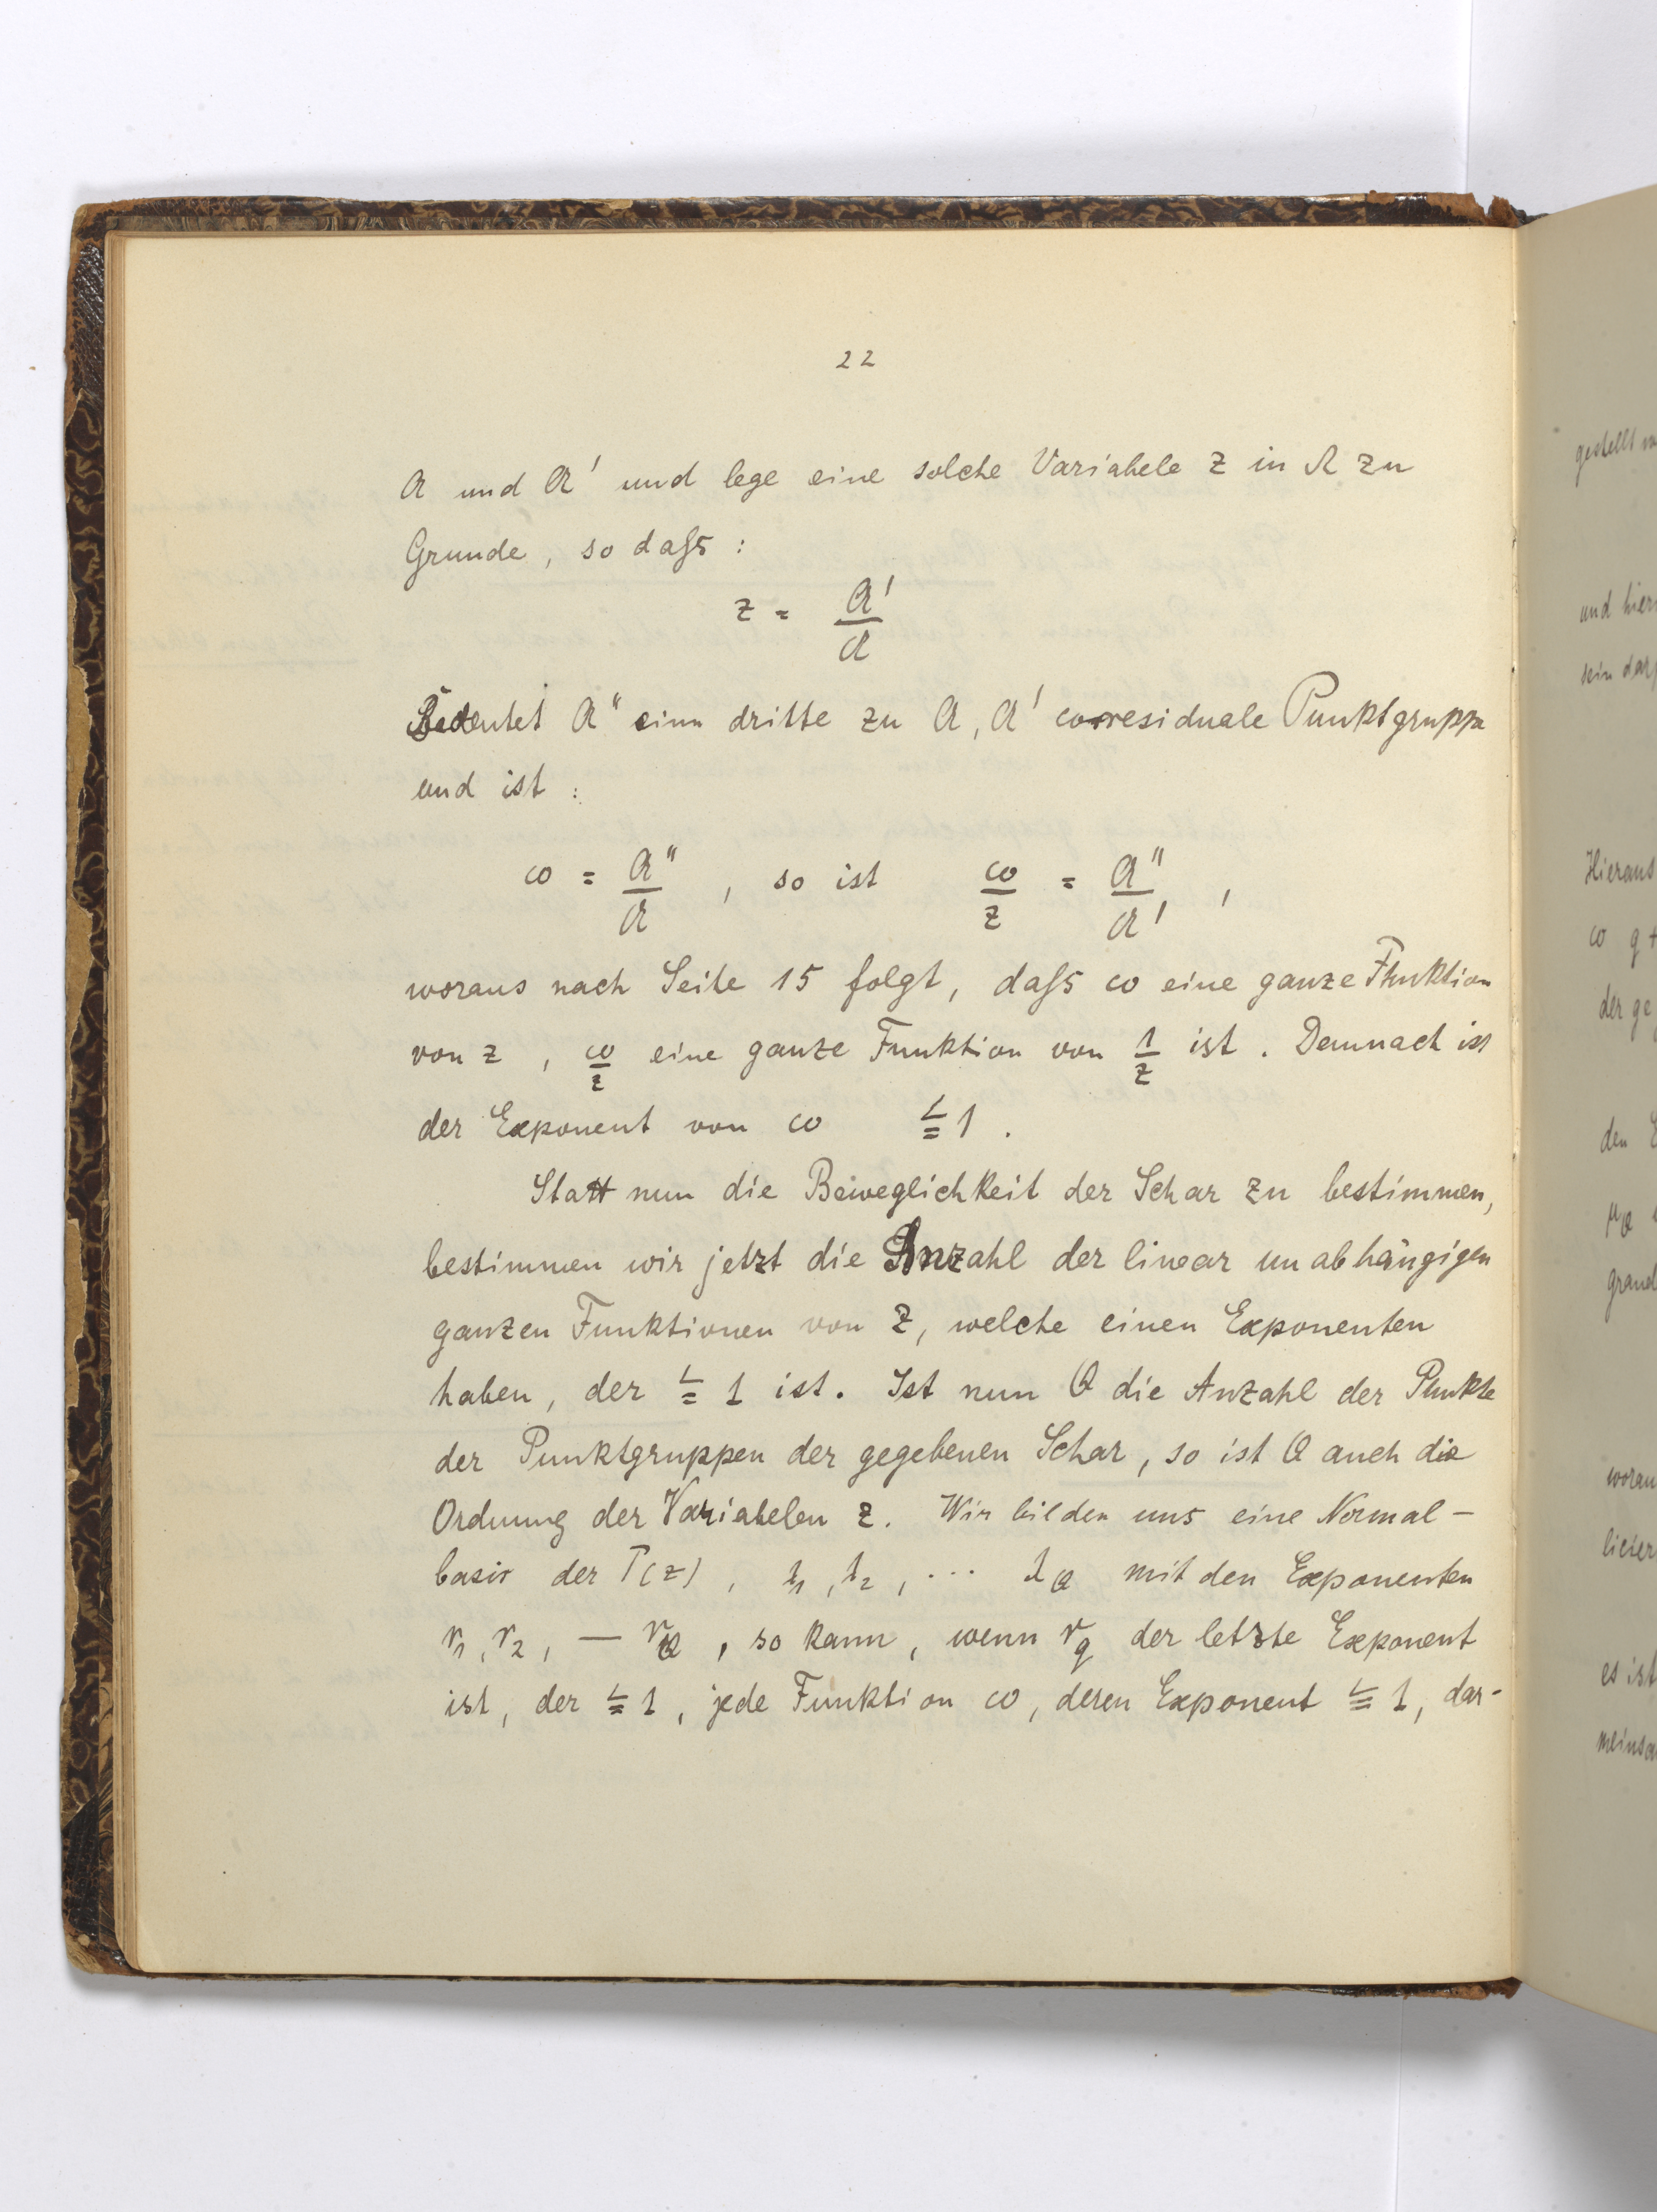 22
A und A' und lege eine solche Variabele z in Ω zu
Grunde, so daß :
z = A'/A
Bedeutet A'' eine dritte zu A, A' corresiduale Punktgruppe
und ist :
ω = A''/A , so ist ω/z = A''/A' ,
woraus nach Seite 15 folgt, daß ω eine ganze Funktion
von z , ω/z eine ganze Funktion von 1/z ist . Demnach ist
der Exponent von ω ≦ 1 .
Statt nun die Beweglichkeit der Schar zu bestimmen,
bestimmen wir jetzt die Anzahl der linear unabhängigen
ganzen Funktionen von z, welche einen Exponenten
haben, der ≦ 1 ist. Ist nun Q die Anzahl der Punkte
der Punktgruppen der gegebenen Schar, so ist Q auch die
Ordnung der Variabelen z. Wir bilden uns eine Normal-
basis der T(z) , λ₁, λ₂, ... λ_Q mit den Exponenten
r₁, r₂, — r_Q , so kann, wenn r_q der letzte Exponent
ist, der ≦ 1, jede Funktion ω, deren Exponent ≦ 1, dar-
gestellt
und hier
sein darf
Hieraus
ω
der ge
den
μ_Q
grand
woran
es ist
meinsa